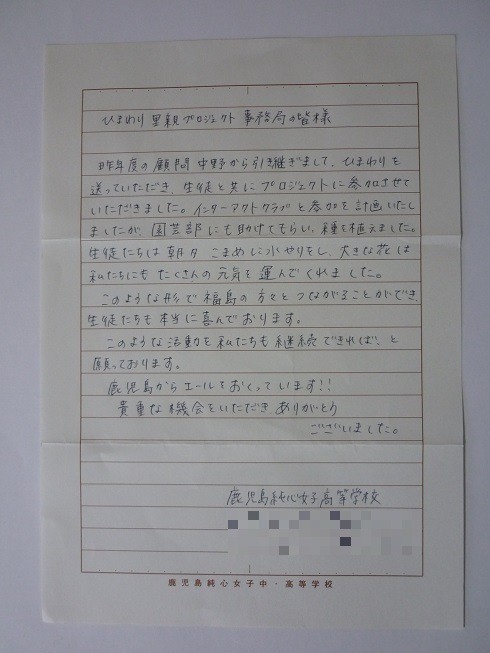 ひまわり里親プロジェクト 事務局の皆様
昨年度の顧問 中野から引き継ぎまして、ひまわりを
送っていただき、生徒と共にプロジェクトに参加させて
いただきました。インターアクトクラブと参加を計画いたし
ましたが、園芸部にも助けてもらい、種を植えました。
生徒たちは朝夕 こまめに水やりをし、大きな花は
私たちにも たくさんの元気を運んでくれました。
このような形で福島の方々とつながることができ、
生徒たちも本当に喜んでおります。
このような活動を私たちも継続できれば、と
願っております。
鹿児島からエールをおくっています!!
貴重な機会をいただき、ありがとう
ございました。
鹿児島純心女子高等学校
鹿児島純心女子中・高等学校